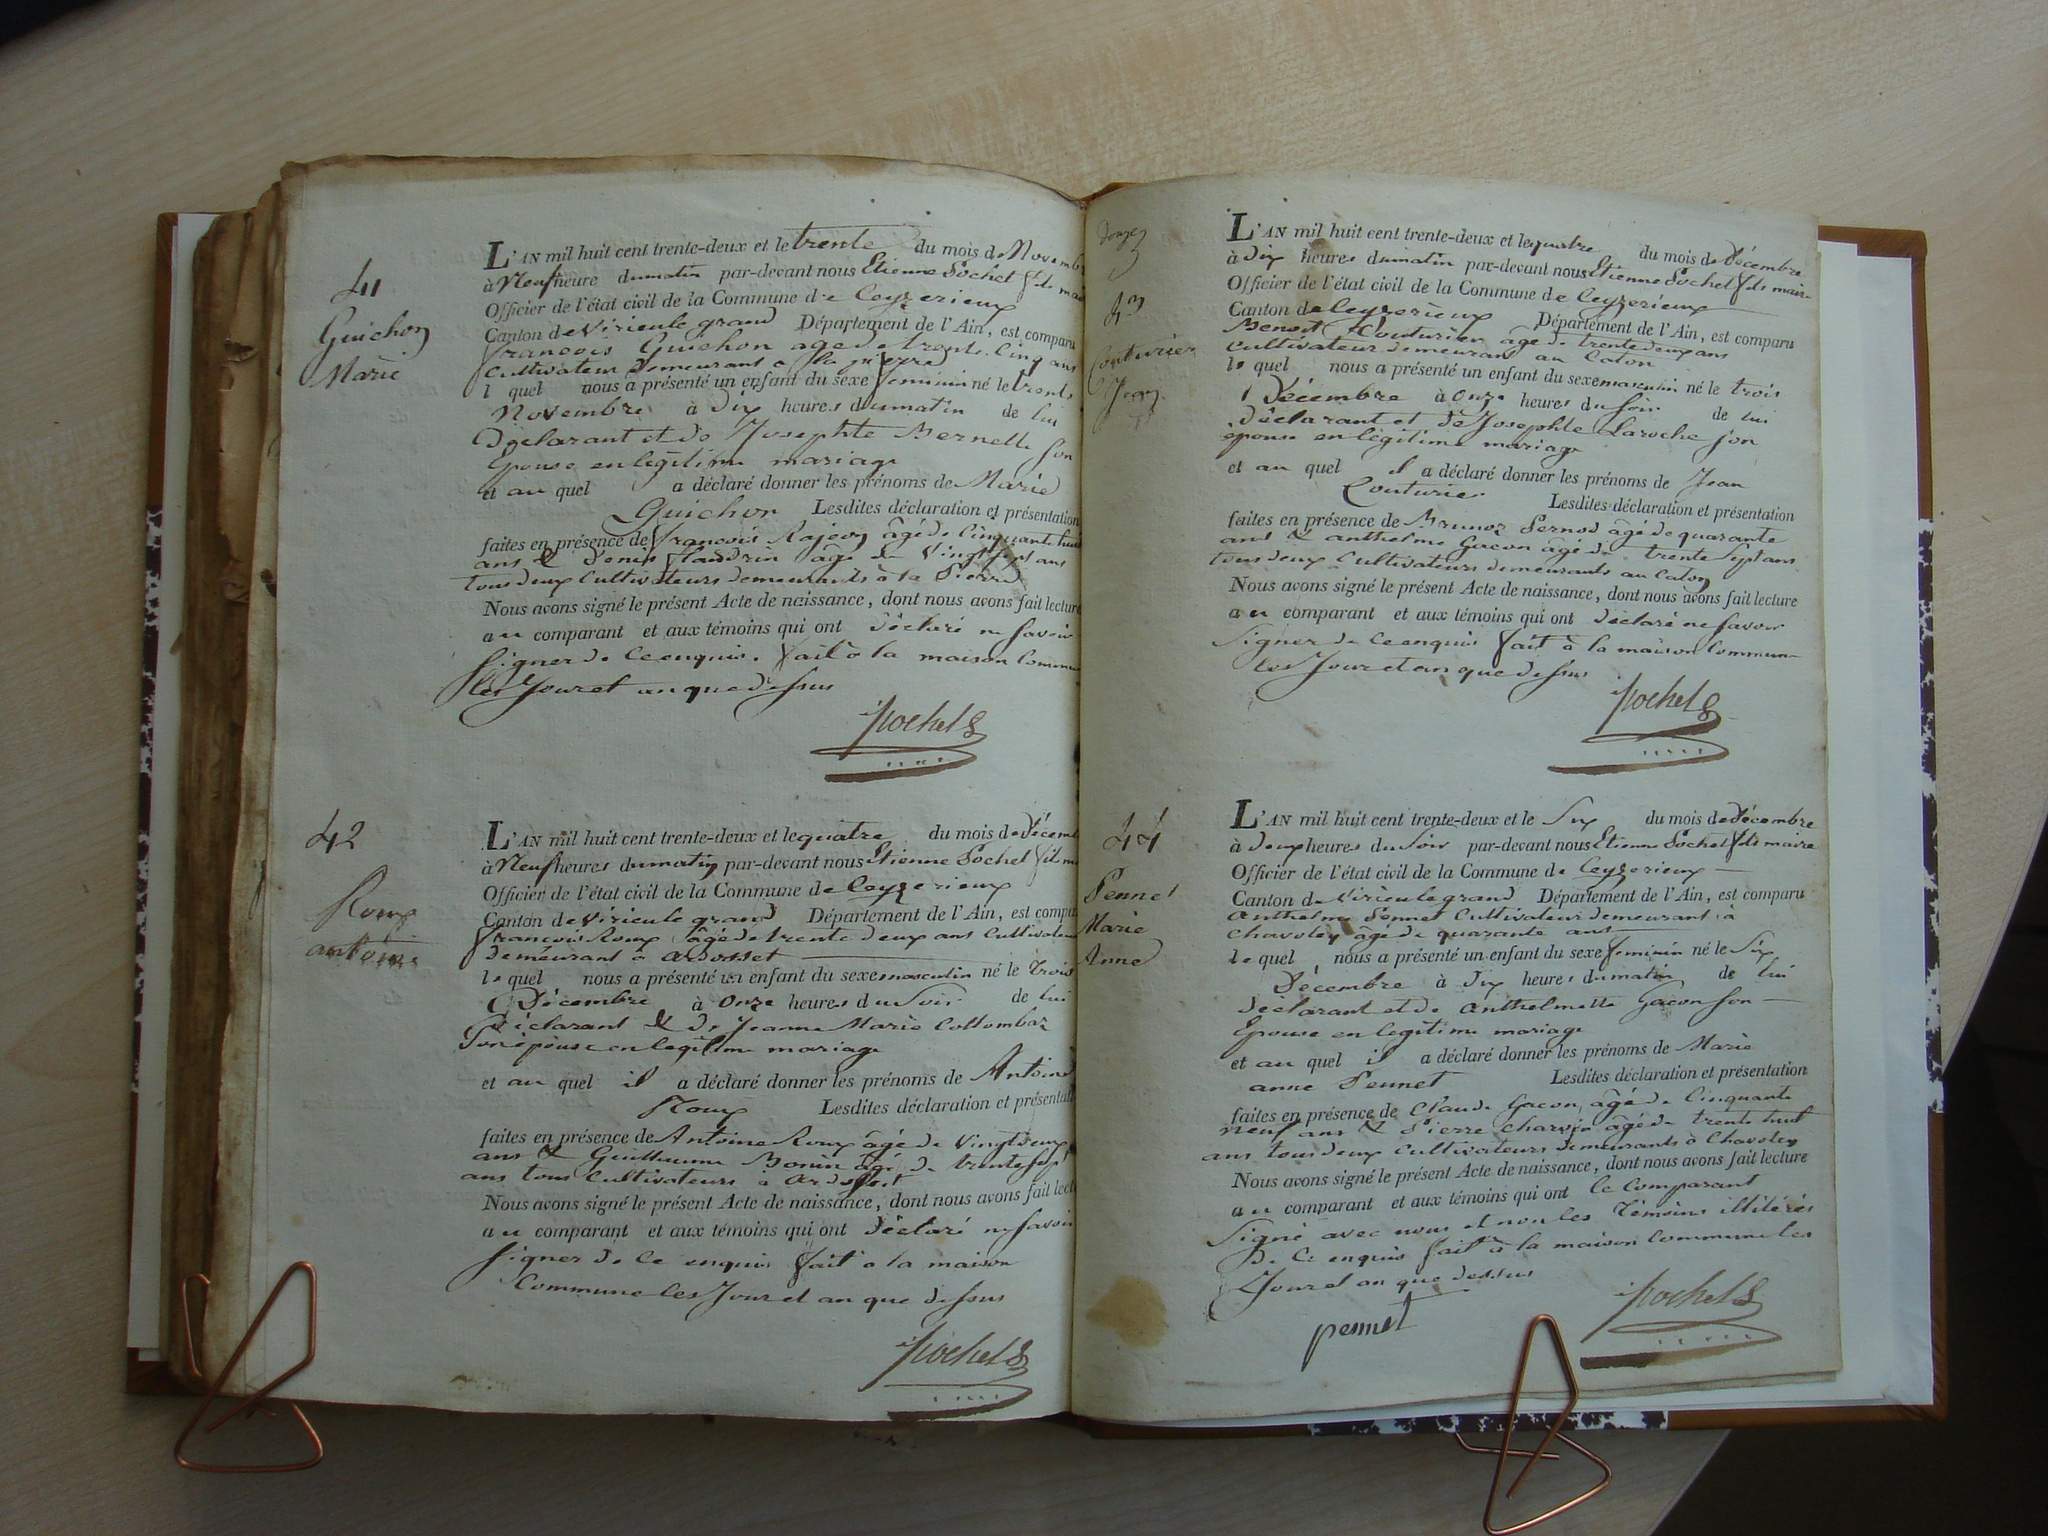 41
Guichon
Marie
L'AN mil huit cent trente-deux et le trente du mois de Novemb
à Neuf heure du matin par-devant nous Etienne Pochet fils mai
Officier de l'état civil de la Commune de Ceyzerieux
Canton de Virieule grand Département de l'Ain, est comparu
françois Guichon agé de trente Cinq ans
Cultivateur demeurant a la pierre
l quel nous a présenté un enfant du sexe feminin né le trente
Novembre à Dix heures du matin de lui
Déclarant et de Josephte Bernette son
Epouse en legitime mariage
et au quel a déclaré donner les prénoms de Marie
Guichon Lesdites déclaration et présentation
faites en présence de françois Rajeon âgé de Cinquante huit
ans & Denis flandrin âgé de Vingt sept ans
tous deux Cultivateurs demeurants à la Pierre
Nous avons signé le présent Acte de naissance, dont nous avons fait lecture
au comparant et aux témoins qui ont déclaré ne savoir
signer de Ce enquis. fait à la maison Commune
les Jour et an que dessus
Pochet
42
Roux
antoine
L'AN mil huit cent trente-deux et le quatre du mois de Décemb
à Neuf heures du matin par-devant nous Etienne Pochet fils m
Officier de l'état civil de la Commune de Ceyzerieux
Canton de Virieule grand Département de l'Ain, est compa
françois Roux âgé de trente deux ans Cultivateur
demeurant à ardosset
le quel nous a présenté un enfant du sexe masculin né le trois
Décembre à onze heures du Soir de lui
Déclarant & de Jeanne Marie Collombaz
Son épouse en legitime mariage
et au quel il a déclaré donner les prénoms de Antoine
Roux Lesdites déclaration et présentati
faites en présence de Antoine Roux âgé de Vingt deux
ans & Guillaume Bonin âgé de trente sept
ans tous Cultivateurs à ardosset
Nous avons signé le présent Acte de naissance, dont nous avons fait lect
au comparant et aux témoins qui ont déclaré ne savoir
signer de Ce enquis fait à la maison
Commune les Jour et an que dessus
Pochet
43
Couturier
Jean
L'AN mil huit cent trente-deux et le quatre du mois de Décembre
à dix heures du matin par-devant nous Etienne Pochet fils maire
Officier de l'état civil de la Commune de Ceyzerieux
Canton de Ceyzerieux Département de l'Ain, est comparu
Benoit Couturier âgé de trente deux ans
Cultivateur demeurant au Caton
le quel nous a présenté un enfant du sexe masculin né le trois
Décembre à onze heures du Soir de lui
Déclarant et de Josephte Laroche son
épouse en légitime mariage
et au quel il a déclaré donner les prénoms de Jean
Couturier Lesdites déclaration et présentation
faites en présence de Brunoz Pernod âgé de quarante
ans & anthelme Gacon âgé de trente Sept ans
tous deux Cultivateurs demeurants au Caton
Nous avons signé le présent Acte de naissance, dont nous avons fait lecture
au comparant et aux témoins qui ont déclaré ne savoir
Signer de Ce enquis fait à la maison Commune
les Jour et an que dessus
Pochet
44
Pennet
Marie
Anne
L'AN mil huit cent trente-deux et le Six du mois de Décembre
à Deux heures du Soir par-devant nous Etienne Pochet fils maire
Officier de l'état civil de la Commune de Ceyzerieux
Canton de Virieule grand Département de l'Ain, est comparu
Anthelme Pennet Cultivateur demeurant à
Chavoley âgé de quarante ans
le quel nous a présenté un enfant du sexe feminin né le Six
Décembre à Dix heures du matin de lui
déclarant et de Anthelmette Gacon Son
Epouse en legitime mariage
et au quel il a déclaré donner les prénoms de Marie
anne Pennet Lesdites déclaration et présentation
faites en présence de Claude Gacon, âgé de Cinquante
neuf ans & Pierre Charvin âgé de trente huit
ans tous deux Cultivateurs demeurants à Chavoley
Nous avons signé le présent Acte de naissance, dont nous avons fait lecture
au comparant et aux témoins qui ont le Comparant
Signé avec nous et non les Témoins illitérés
De Ce enquis fait à la maison Commune les
Jour et an que dessus
pennet
Pochet